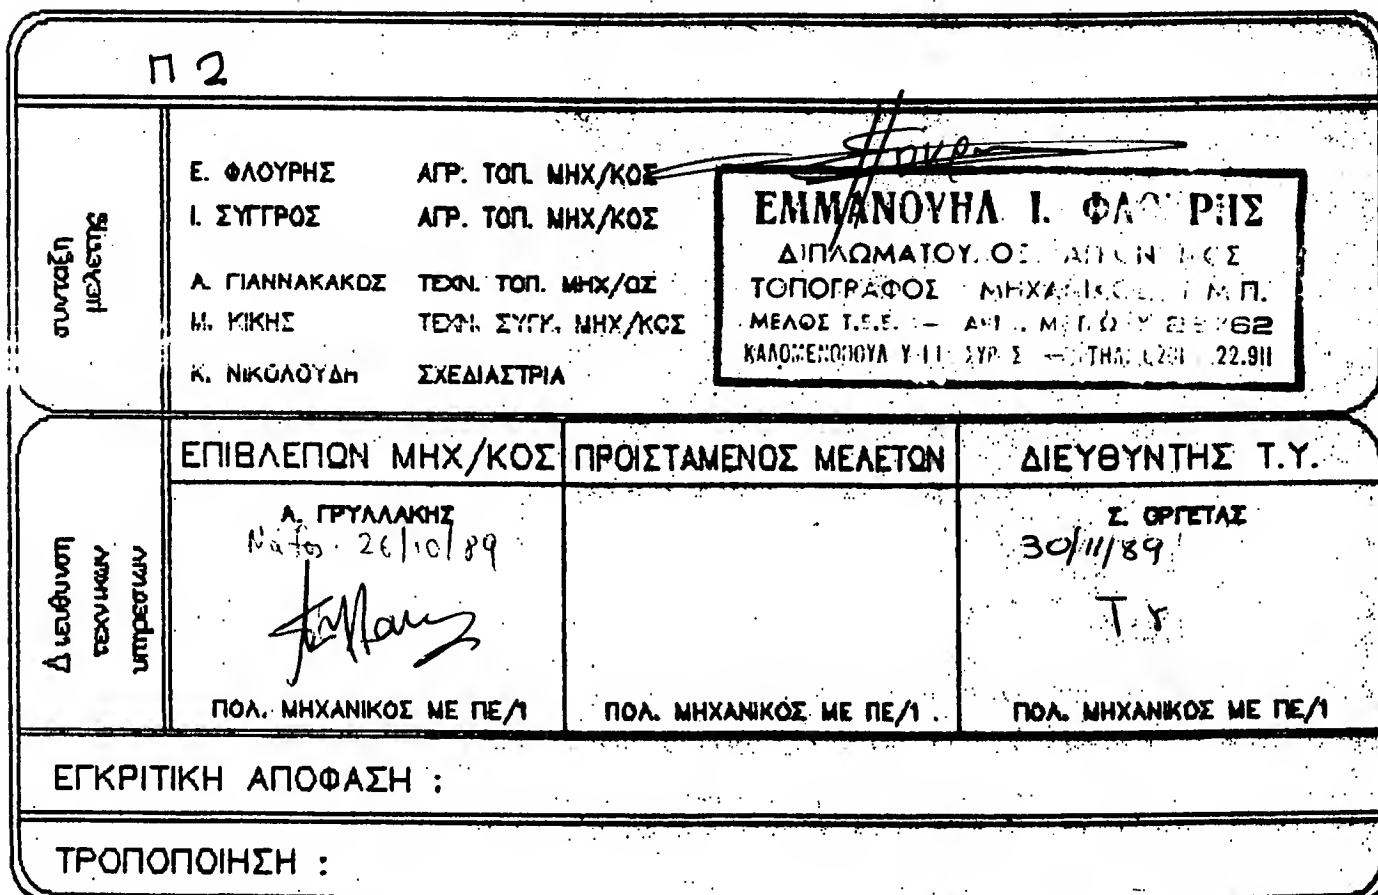 Π 2
συνταξη
μελετης
Ε. ΦΛΟΥΡΗΣ ΑΓΡ. ΤΟΠ. ΜΗΧ/ΚΟΣ
Ι. ΣΥΓΓΡΟΣ ΑΓΡ. ΤΟΠ. ΜΗΧ/ΚΟΣ
Α. ΓΙΑΝΝΑΚΑΚΟΣ ΤΕΧΝ. ΤΟΠ. ΜΗΧ/ΟΣ
Μ. ΚΙΚΗΣ ΤΕΧΝ. ΣΥΓΚ. ΜΗΧ/ΚΟΣ
Κ. ΝΙΚΟΛΟΥΔΗ ΣΧΕΔΙΑΣΤΡΙΑ
ΕΜΜΑΝΟΥΗΛ Ι. ΦΛΟΥΡΗΣ
ΔΙΠΛΩΜΑΤΟΥΧΟΣ
ΤΟΠΟΓΡΑΦΟΣ ΜΗΧΑΝΙΚΟΣ Ε.Μ.Π.
ΜΕΛΟΣ Τ.Ε.Ε. –
– ΤΗΛ. 22.911
Διευθυνση
τεχνικων
υπηρεσιων
ΕΠΙΒΛΕΠΩΝ ΜΗΧ/ΚΟΣ ΠΡΟΙΣΤΑΜΕΝΟΣ ΜΕΛΕΤΩΝ ΔΙΕΥΘΥΝΤΗΣ Τ.Υ.
Α. ΓΡΥΛΛΑΚΗΣ
26/10/89
Σ. ΟΡΓΕΤΑΣ
30/11/89
Τ.Υ
ΠΟΛ. ΜΗΧΑΝΙΚΟΣ ΜΕ ΠΕ/1 ΠΟΛ. ΜΗΧΑΝΙΚΟΣ ΜΕ ΠΕ/1 ΠΟΛ. ΜΗΧΑΝΙΚΟΣ ΜΕ ΠΕ/1
ΕΓΚΡΙΤΙΚΗ ΑΠΟΦΑΣΗ :
ΤΡΟΠΟΠΟΙΗΣΗ :